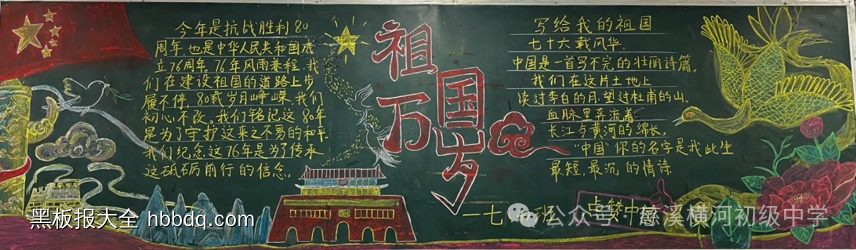 今年是抗战胜利80
周年,也是中华人民共和国成
立76周年,76年风雨兼程,我
们在建设祖国的道路上步
履不停,80载岁月峥嵘,我们
初心不改,我们铭记这80年
是为了守护这来之不易的和平
我们纪念这76年是为了传承
这砥砺前行的信念。
祖国
万岁
写给我的祖国
七十六载风华,
中国是一首写不完的壮丽诗篇,
我们在这片土地上
读过李白的月,望过杜甫的山,
血脉里奔流着
长江与黄河的绵长,
"中国"你的名字是我此生
最短,最沉的情诗
一七
班
黑板报大全 hbbdq.com
公众号·慈溪横河初级中学